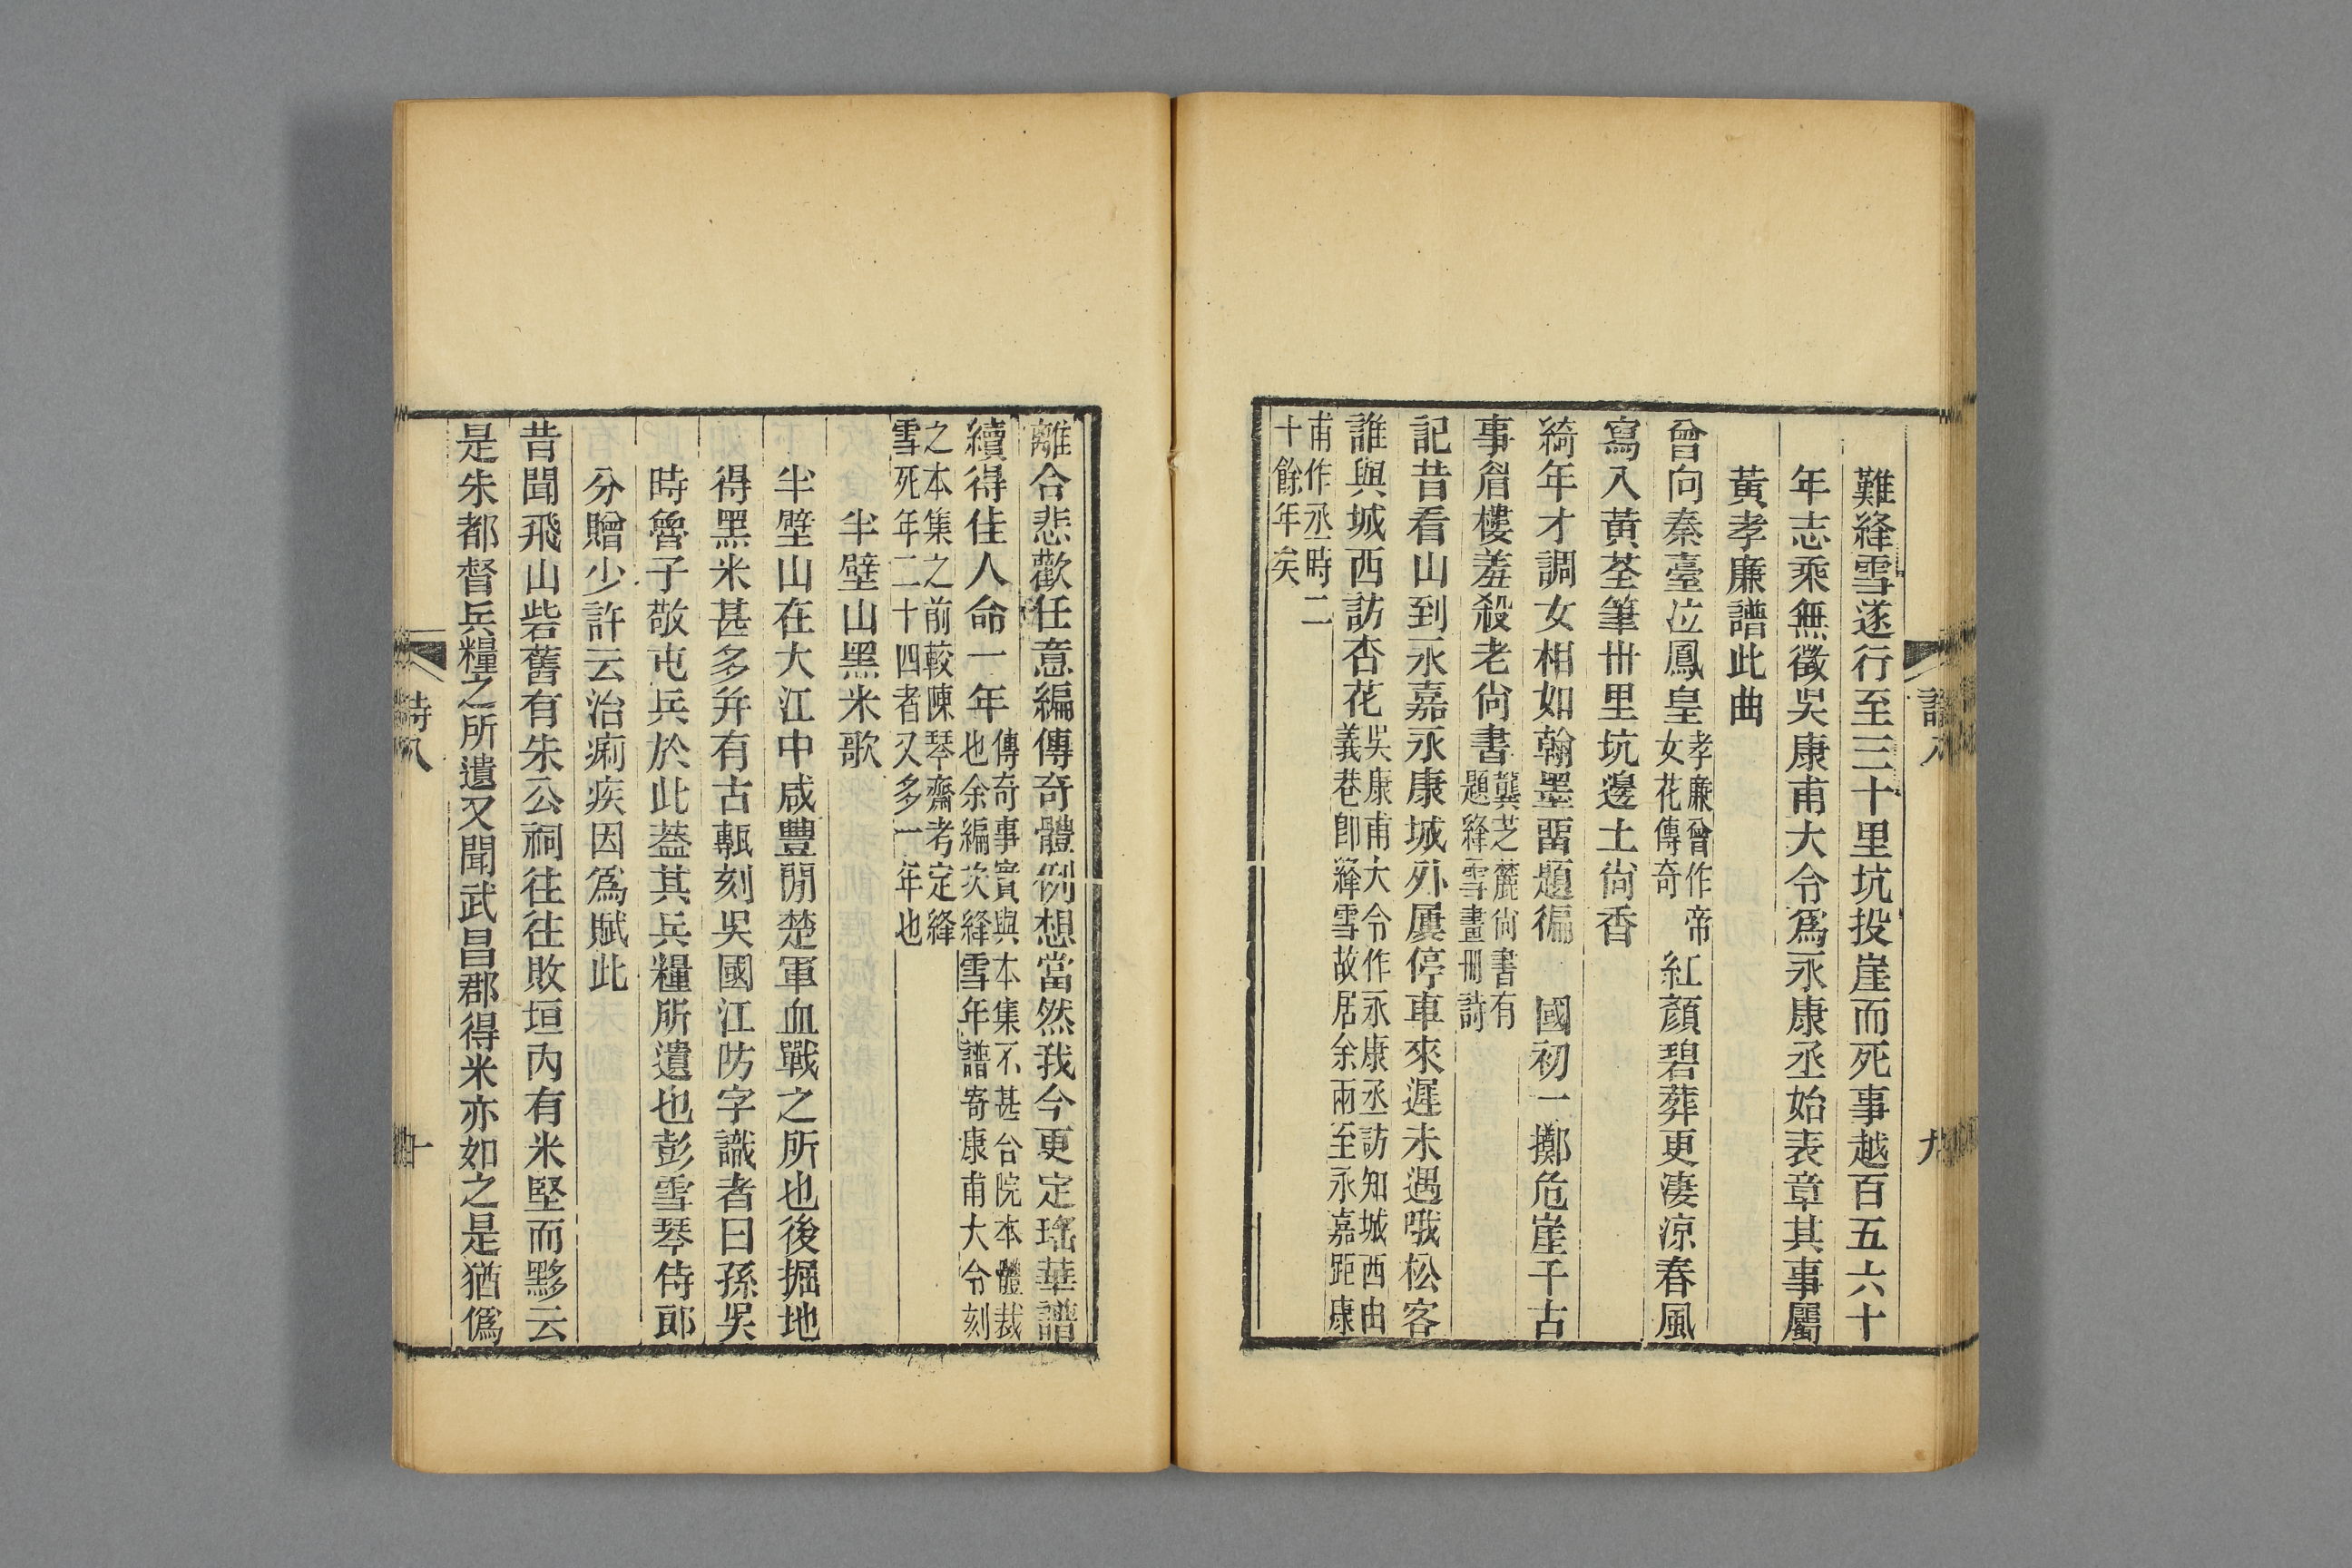 難絳雪遂行至三十里坑投崖而死事越百五六十
年志乘無徵吳康甫大令爲永康丞始表章其事屬
黃孝廉譜此曲
曾向秦臺泣鳳皇孝廉曾作帝女花傳奇紅顏碧葬更淒涼春風
寫入黃荃筆卅里坑邊土尙香
綺年才調女相如翰墨畱題徧國初一擲危崖千古
事眉樓羞殺老尙書龔芝麓尙書有題絳雪畫冊詩
記昔看山到永嘉永康城外屢停車來遲未遇哦松客
誰與城西訪杏花吳康甫大令作永康丞訪知城西由義巷卽絳雪故居余兩至永嘉距康
甫作丞時二十餘年矣
離合悲歡任意編傳奇體例想當然我今更定瑤華譜
續得佳人命一年傳奇事實與本集不甚合院本體裁也余編次絳雪年譜寄康甫大令刻
之本集之前較陳琴齋考定絳雪死年二十四者又多一年也
半壁山黑米歌
半壁山在大江中咸豐閒楚軍血戰之所也後掘地
得黑米甚多幷有古甎刻吳國江防字識者曰孫吳
時魯子敬屯兵於此蓋其兵糧所遺也彭雪琴侍郎
分贈少許云治痢疾因爲賦此
昔聞飛山砦舊有朱公祠往往敗垣內有米堅而黟云
是朱都督兵糧之所遺又聞武昌郡得米亦如之是猶僞
詩八
十